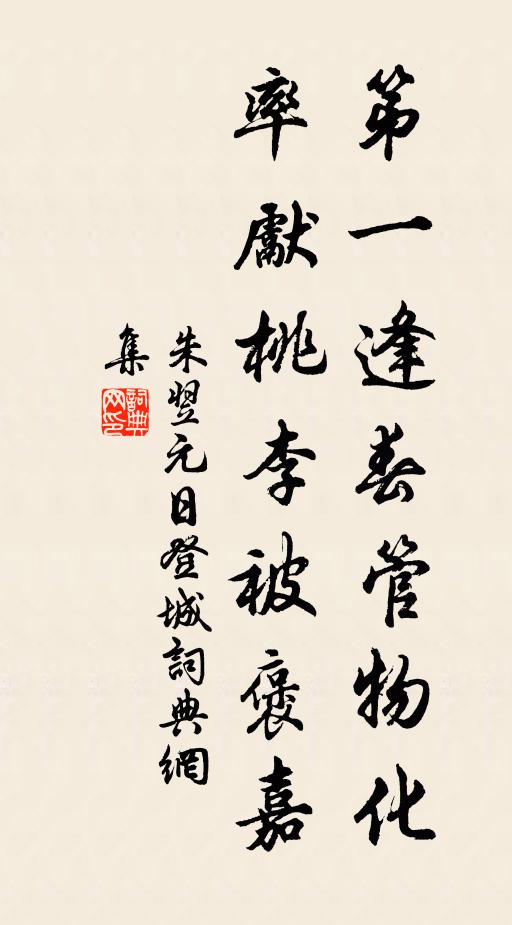 第一逢春管物化
率獻桃李被褒嘉
朱翌元日登城詞典網
集
詞典
网印